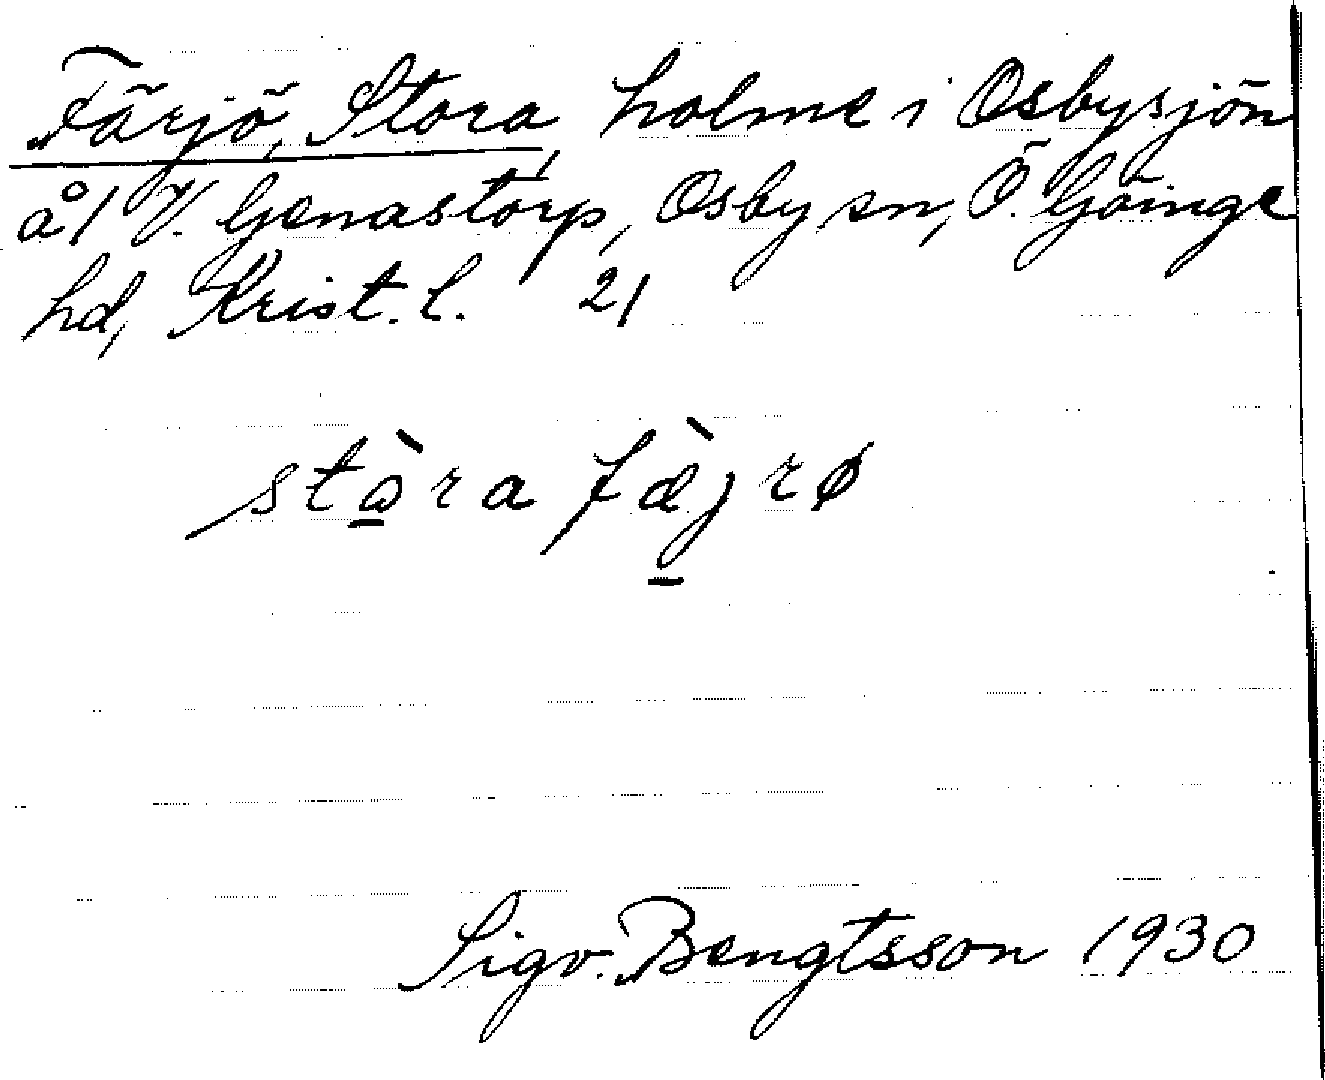 Färjö, Stora, holme i Osbysjön
å 1 V. Genastorp, Osby sn, Ö. Göinge
hd, Krist. l. 21
stàra fæ̀jrø
Sigv. Bengtsson 1930